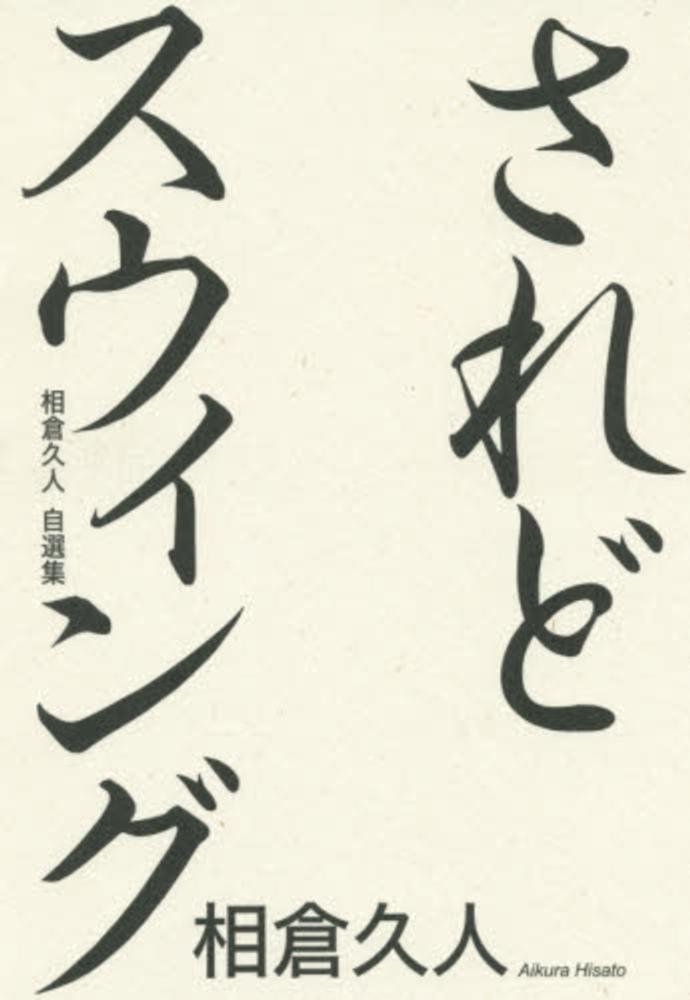 されど
スウィング
相倉久人 自選集
相倉久人
Aikura Hisato